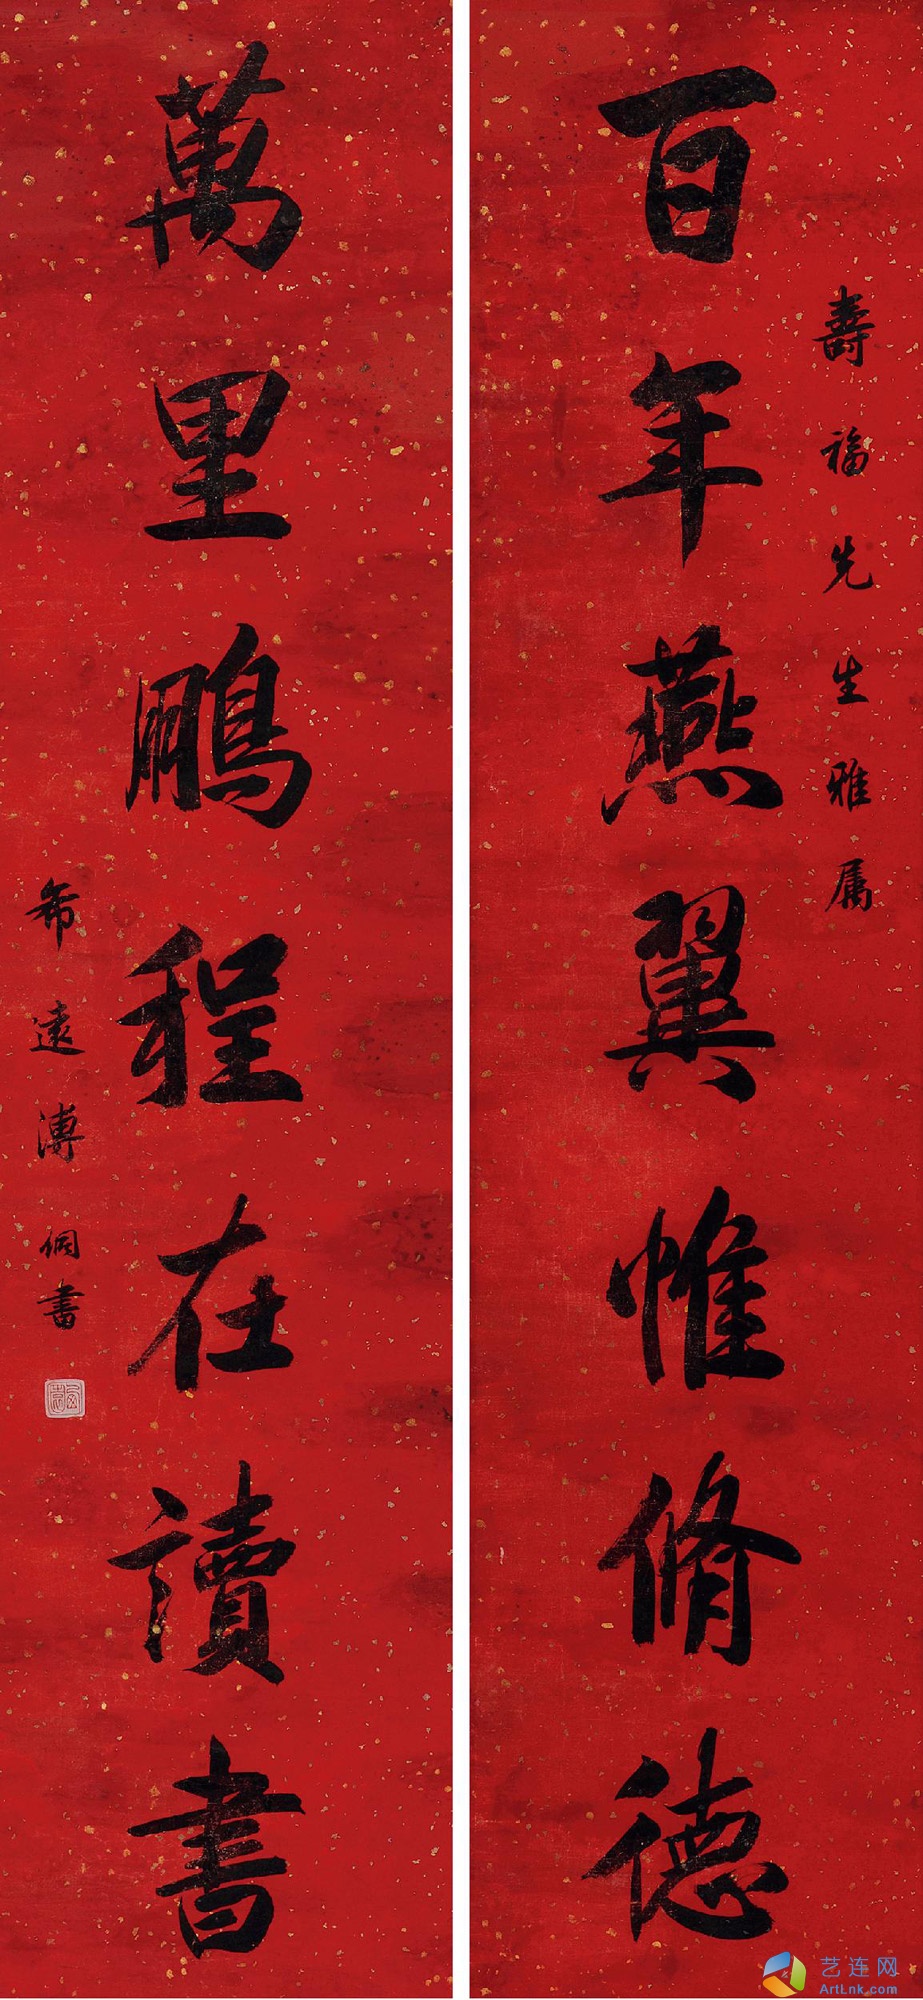 壽福先生雅属
百年燕翼惟脩德
萬里鵬程在讀書
希遠溥侗書
艺连网
ArtLnk.com